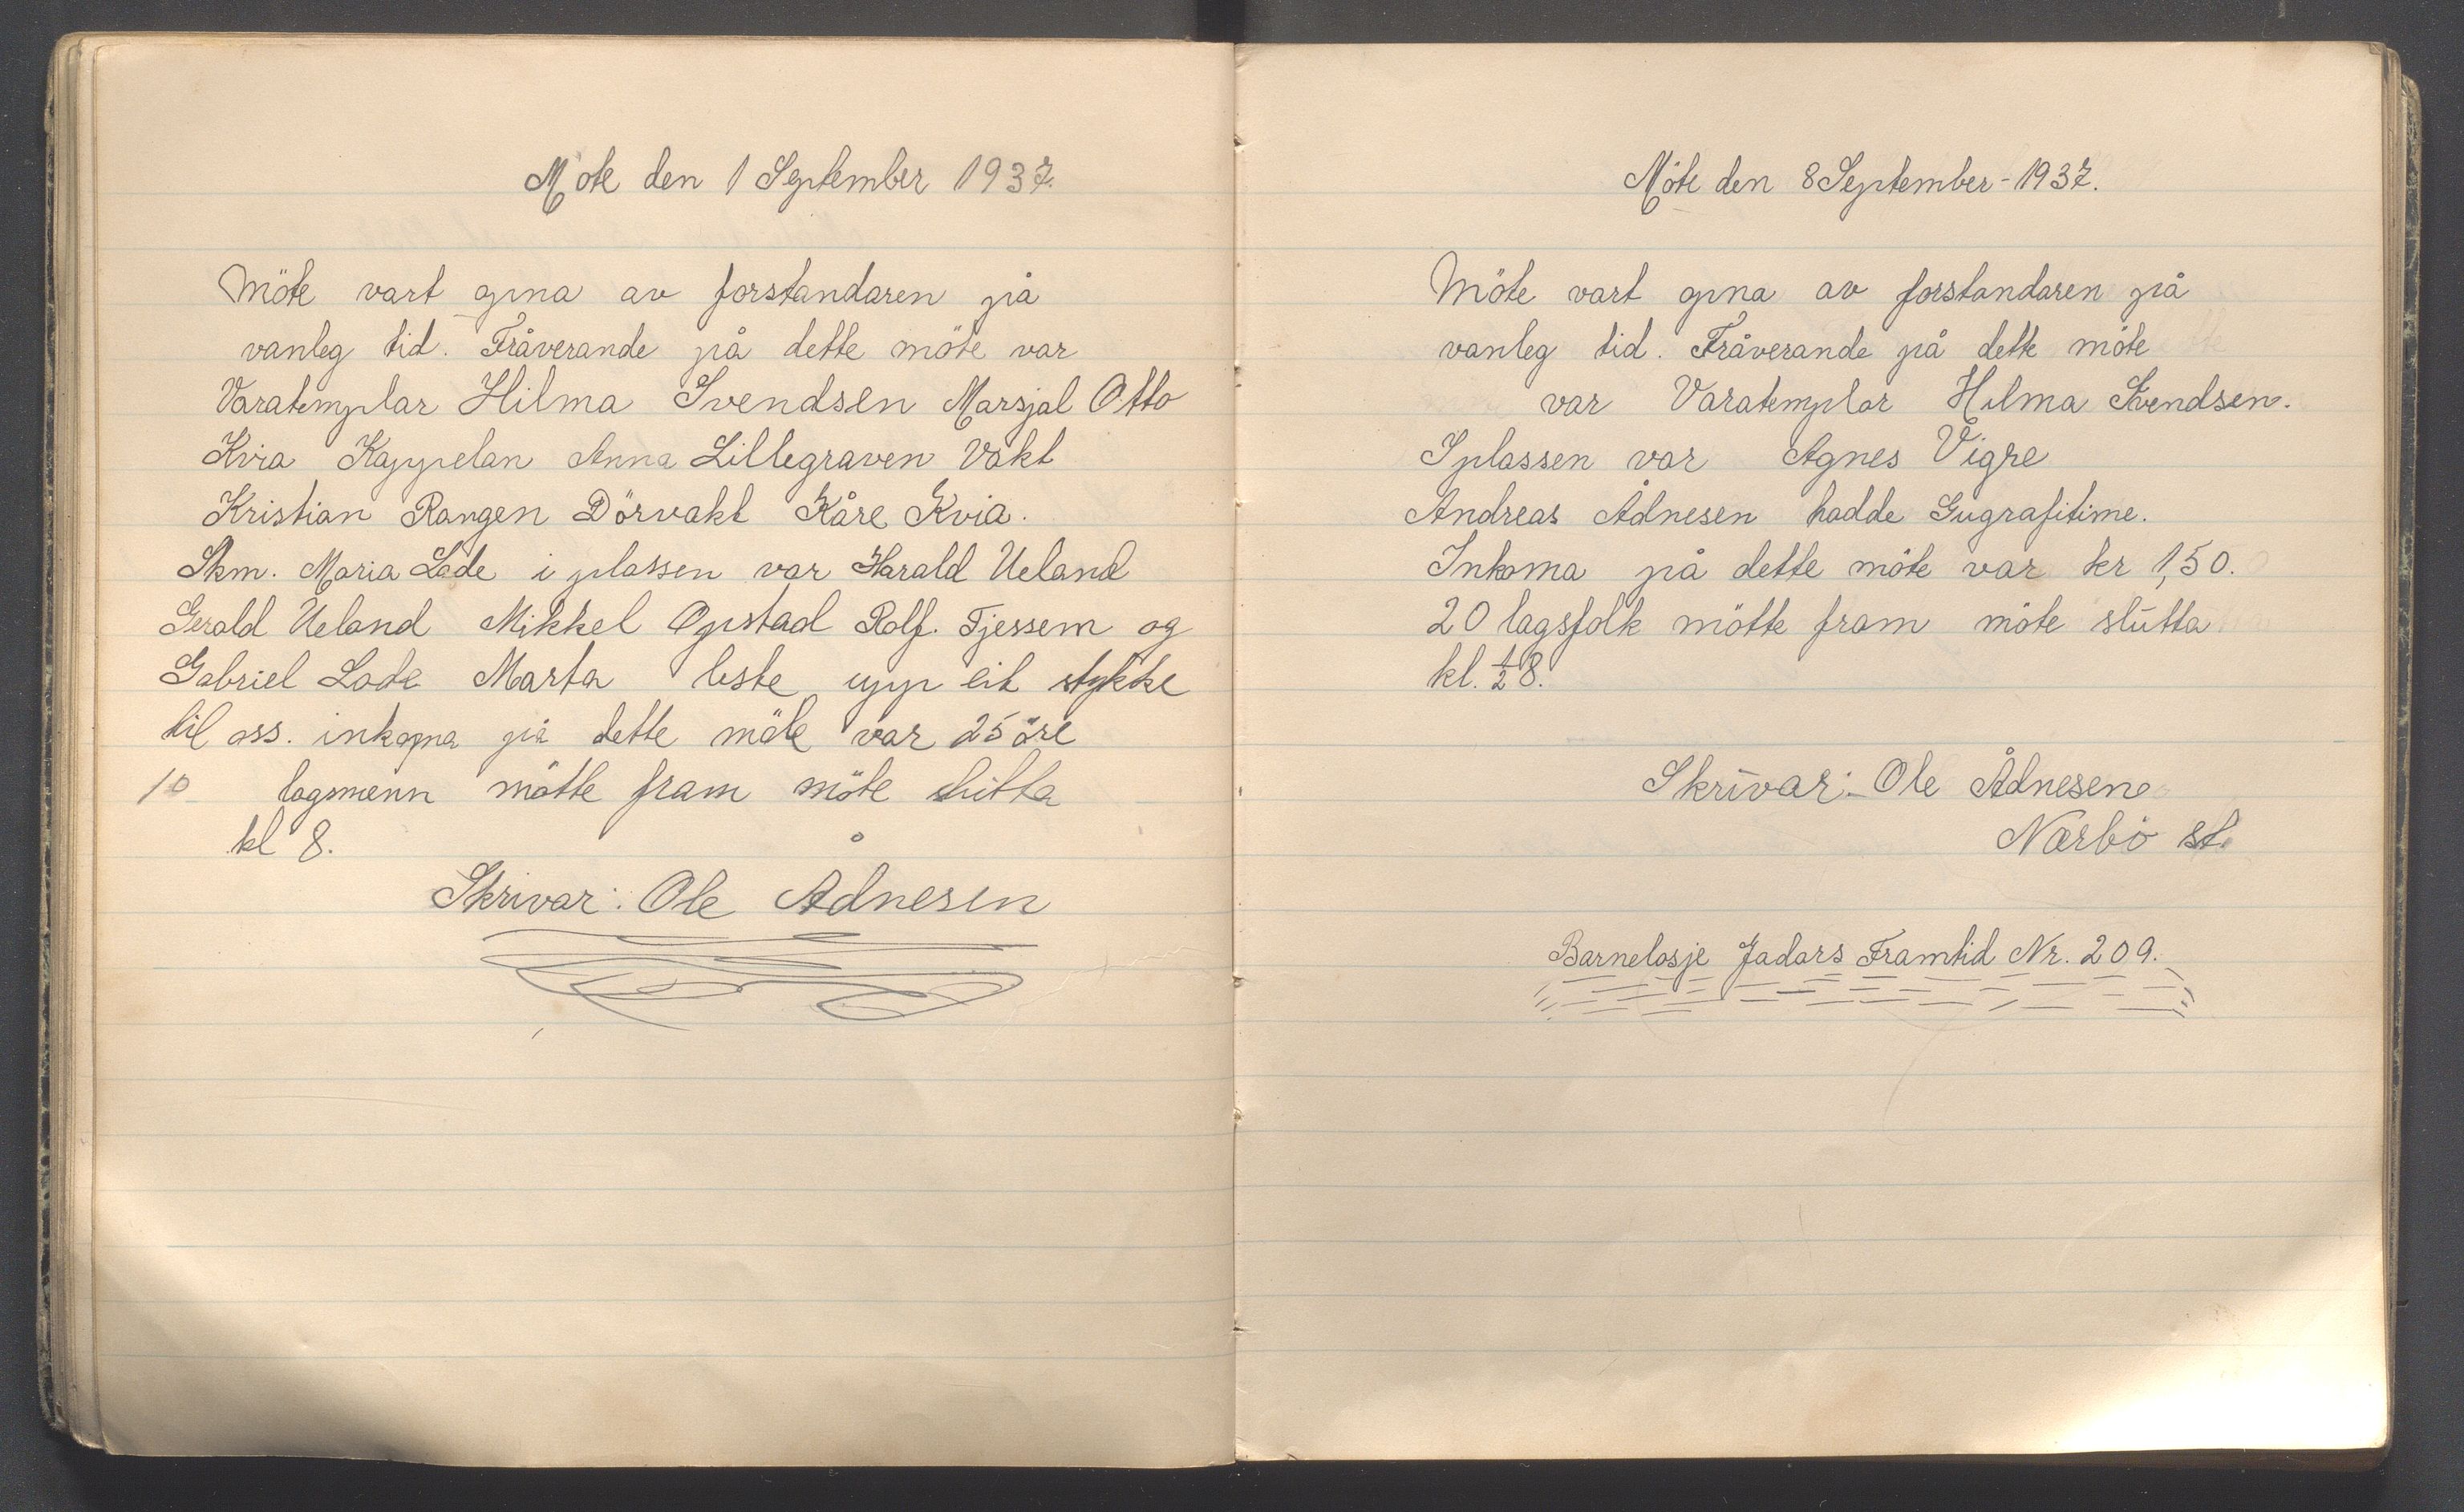 Möte den 1 September 1937.
Möte vart opna av forstandaren på
vanleg tid. Fråverande på dette möte var
Varatemplar Hilma Svendsen Marsjal Otto
Kvia Kappelan Anna Lillegraven Vakt
Kristian Rangen Dörvakt Kåre Kvia.
Skm. Maria Lode i plassen var Harald Ueland
Gerald Ueland Mikkel Opstad Rolf. Tjessem og
Gabriel Lode Marta leste upp eit stykke
til oss. inkoma på dette möte var 25 öre
10 lagsmenn mötte fram möte slutta
kl 8.
Skrivar: Ole Ådnesen
Möte den 8 September - 1937.
Möte vart opna av forstandaren på
vanleg tid. Fråverande på dette möte
var Varatemplar Hilma Svendsen.
I plassen var Agnes Vigre
Andreas Ådnesen hadde Gugrafitime.
Inkoma på dette möte var kr 1,50.
20 lagsfolk mötte fram möte slutta
kl. ½8.
Skrivar:- Ole Ådnesen
Nærbö st.
Barnelosje Jadars Framtid Nr. 209.